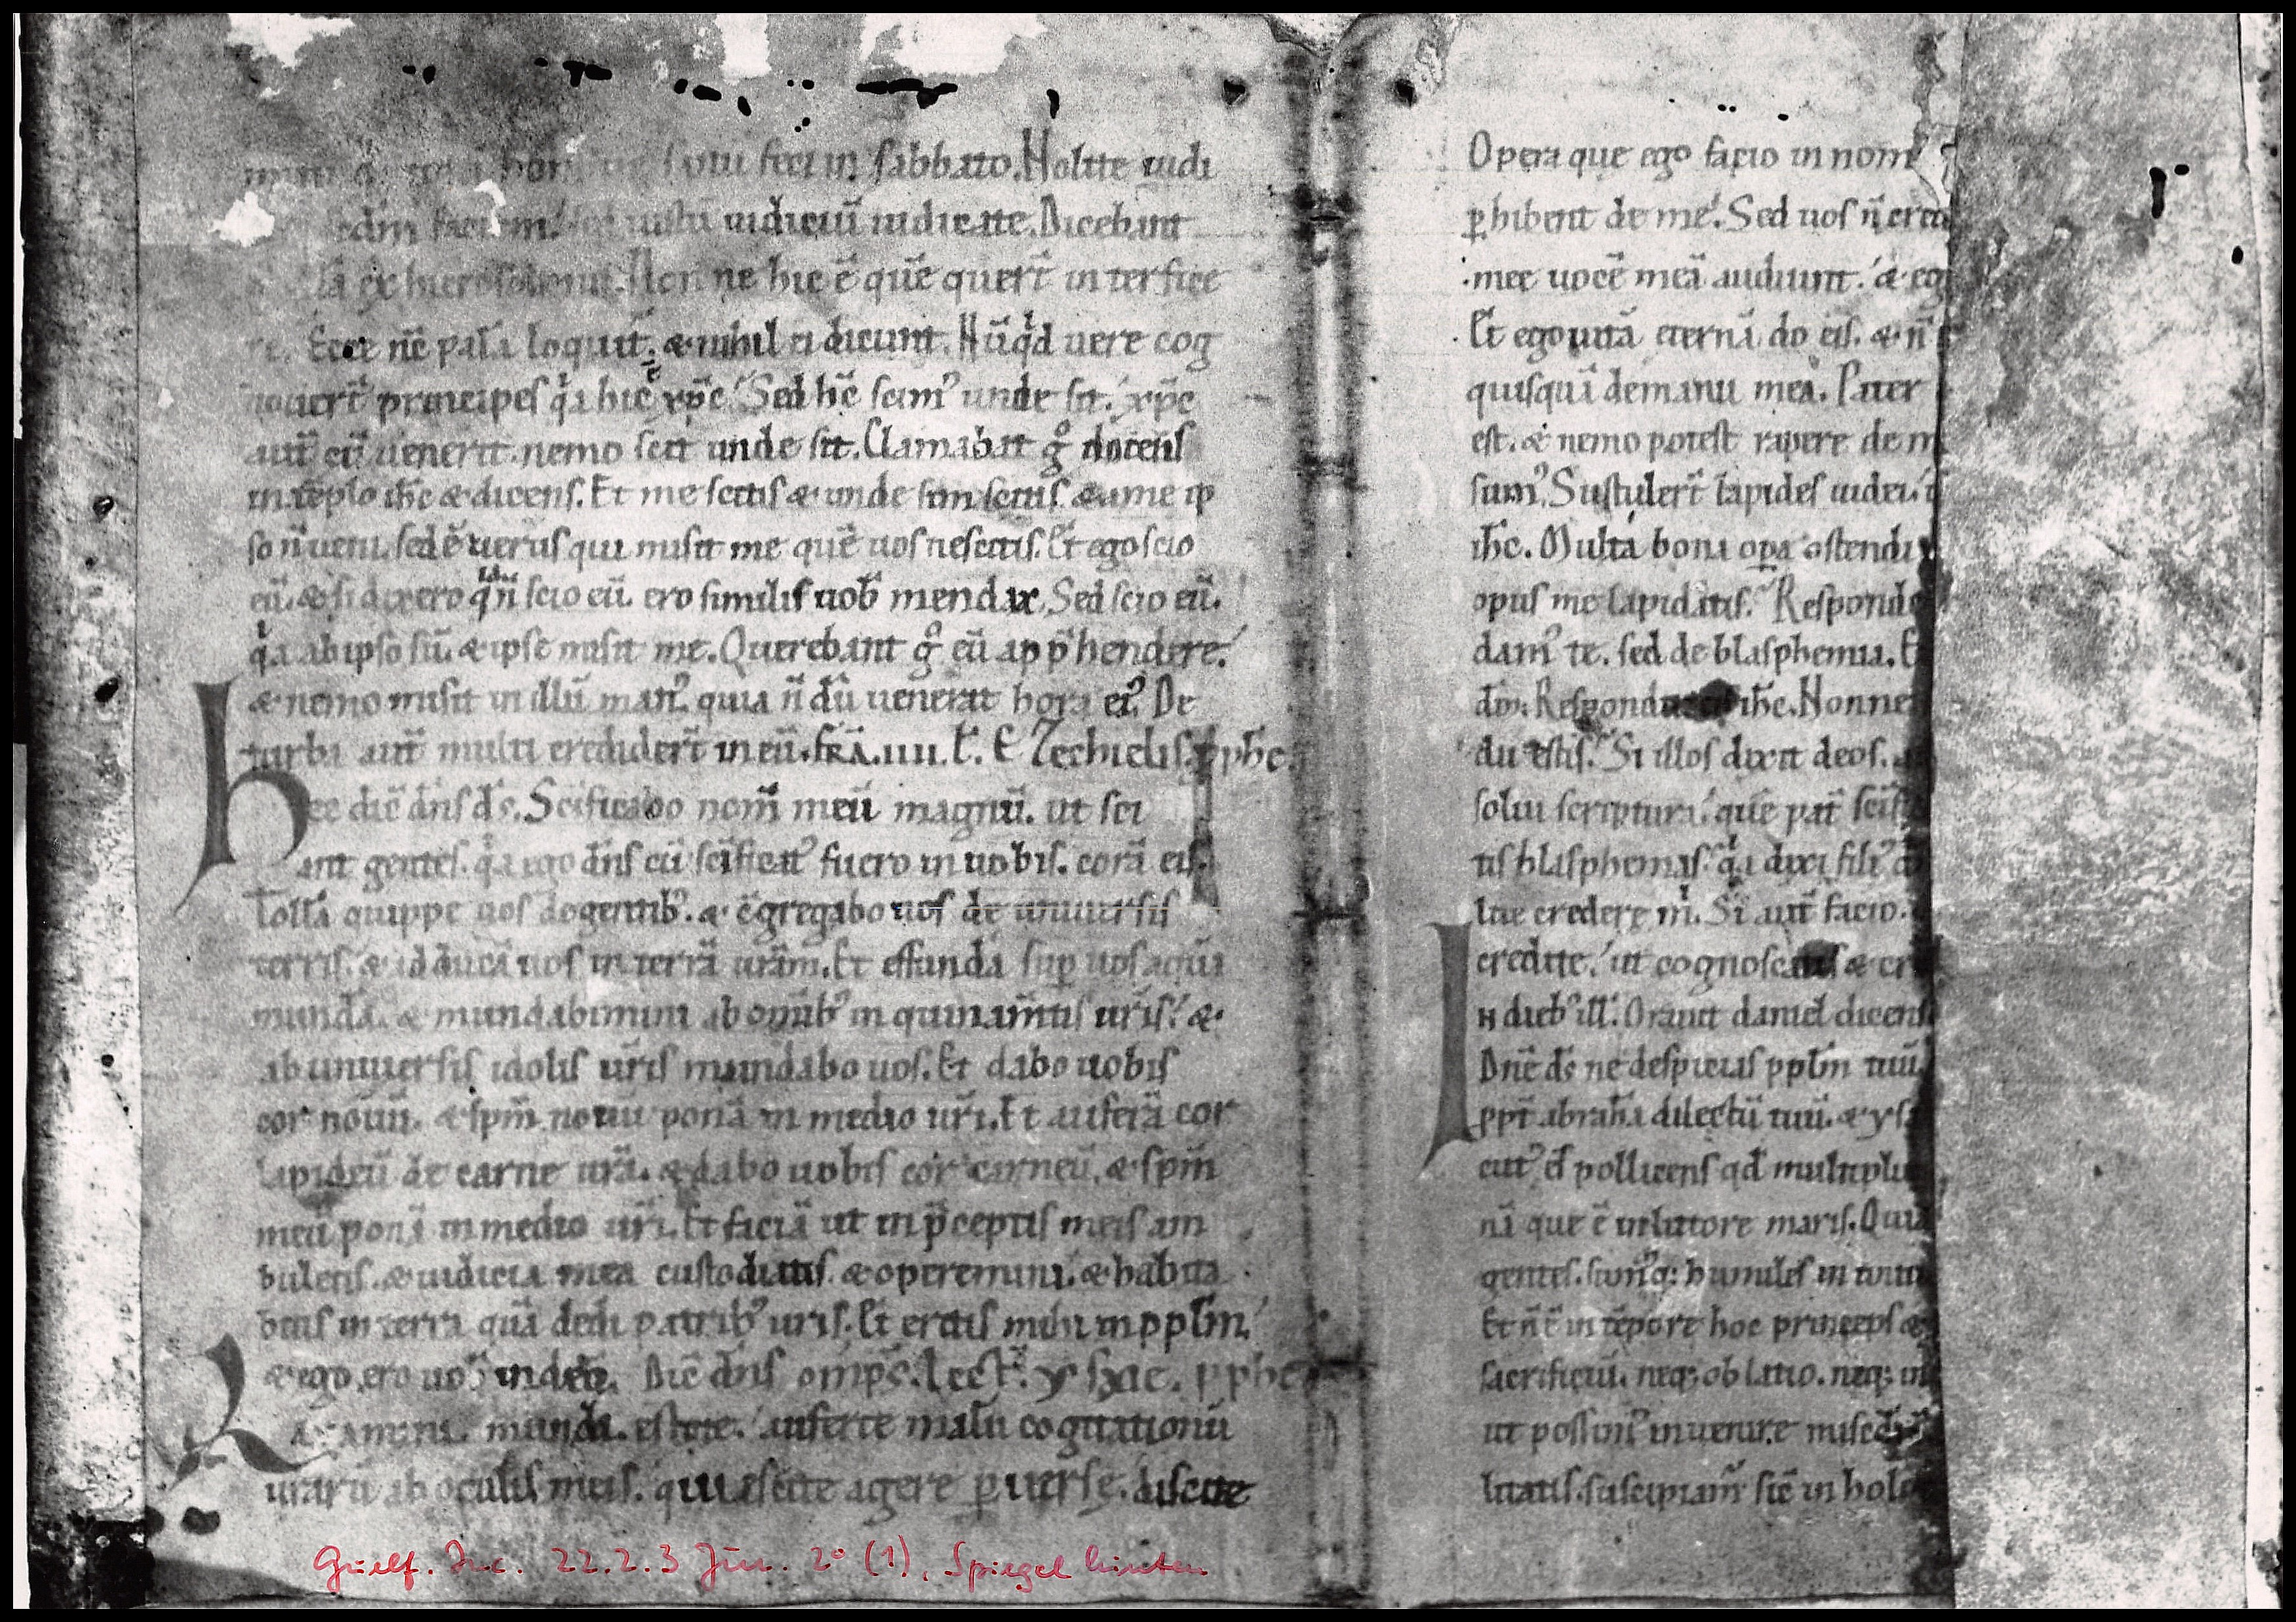 sabbato. Nolite iudi
faciem. iudiciū iudicate. Dicebant
ex hierosolimis. Non ne hic ē quē querт̄ interfice
Ecce nc̄ palā loquit̄. & nihil ei dicunt. Nūqd uere cog
nouert̄ principes qa hic ē xp̄c. Sed hc̄ scim᾿ unde sit. xp̄c
aut̄ cū uenerit. nemo scit unde sit. Clamabat g° docens
in tēplo ih̄c & dicens. Et me scitis & unde sim scitis. & a me ip
so n̄ ueni. sed ē uerus qui misit me quē uos nescitis. Et ego scio
eū. & si dixero qa n̄ scio eū. ero similis uob̄ mendax. Sed scio eū.
qa ab ipso sū. & ipse misit me. Querebant g° eū app̄hendere.
& nemo misit in illū man᾿. quia n̄ dū uenerat hora ei᾿. De
turba aut̄ multi crediderт̄ in eū. Fr̄a. IIII. L̄. Ezechielis. pphe.
Hec dic̄ dn̄s ds̄. Sc̄ificabo nom̄ meū magnū. ut sci
ant gentes. qa ego dn̄s cū sc̄ificat᾿ fuero in uobis. corā eis.
Tollā quippe uos de gentib᾿. & c̄gregabo uos de uniuersis
terris. & adducā uos in terrā ur̄am. Et effundā sup uos aquā
mundā. & mundabimini ab om̄ib᾿ inquinam̄tis ur̄is. &
ab uniuersis idolis ur̄is mundabo uos. Et dabo uobis
cor nouū. & sp̄m nouū ponā in medio ur̄i. Et auferā cor
lapideū de carne ur̄a. & dabo uobis cor carneū. & sp̄m
meū ponā in medio ur̄i. Et faciā ut in p̄ceptis meis am
buletis. & iudicia mea custodiatis. & operemini. & habita
bitis in terra quā dedi patrib᾿ ur̄is. Et eritis mihi in pplm̄.
& ego ero uob̄ in dm̄. Dic̄ dn̄s omp̄s. Lect̄. ysaie. pphe
Lauamini. mundi. estote. auferte malū cogitationū
ur̄arū ab oculis meis. quiescite agere puerse. discite
Opera que ego facio in nom̄
phibent de me. Sed uos n̄ cred
mee uocē meā audiunt. & eg
Et ego uitā eternā do eis. & n̄
quisquā de manu mea. Pater
est. & nemo potest rapere de m
sum᾿. Sustulerт̄ lapides iudei.
ih̄c. Multa bona opa ostendi
opus me lapidatis. Responde
dam᾿ te. sed de blasphemia. E
dm̄. Respondit ih̄c. Nonne
dii estis. Si illos dixit deos.
solui scriptura. quē pat̄ sc̄if
tis blasphemas. qa dixi fili᾿ d
lite credere m̄. Si aut̄ facio.
credite. ut cognoscatis & cr
IN dieb᾿ ill̄. Orauit daniel dicens
Dn̄e ds̄ ne despicias pplm̄ tuū.
ppt̄ abrahā dilectū tuū. & ys
cut᾿ es̄ pollicens qd̄ multipli
nā que ē in litore maris. Quia
gentes. sum᾿q; humiles in uniu
Et n̄ ē in tēpore hoc princeps &
sacrificiū. neq; oblatio. neq; in
ut possim᾿ inuenire mis̄cdiā
litatis. suscipiam᾿ sic̄ in holo
Guelf. Inc. 22.2.3 Jur. 2° (1), Spiegel hinten